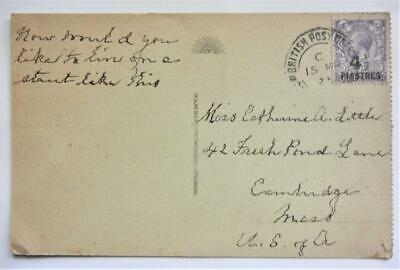 How would you
like to live in a
street like this
BRITISH POST
C
15 M
4½
PIASTRES
Miss Catherine A. Little
42 Fresh Pond Lane
Cambridge
Mass
U. S. of A